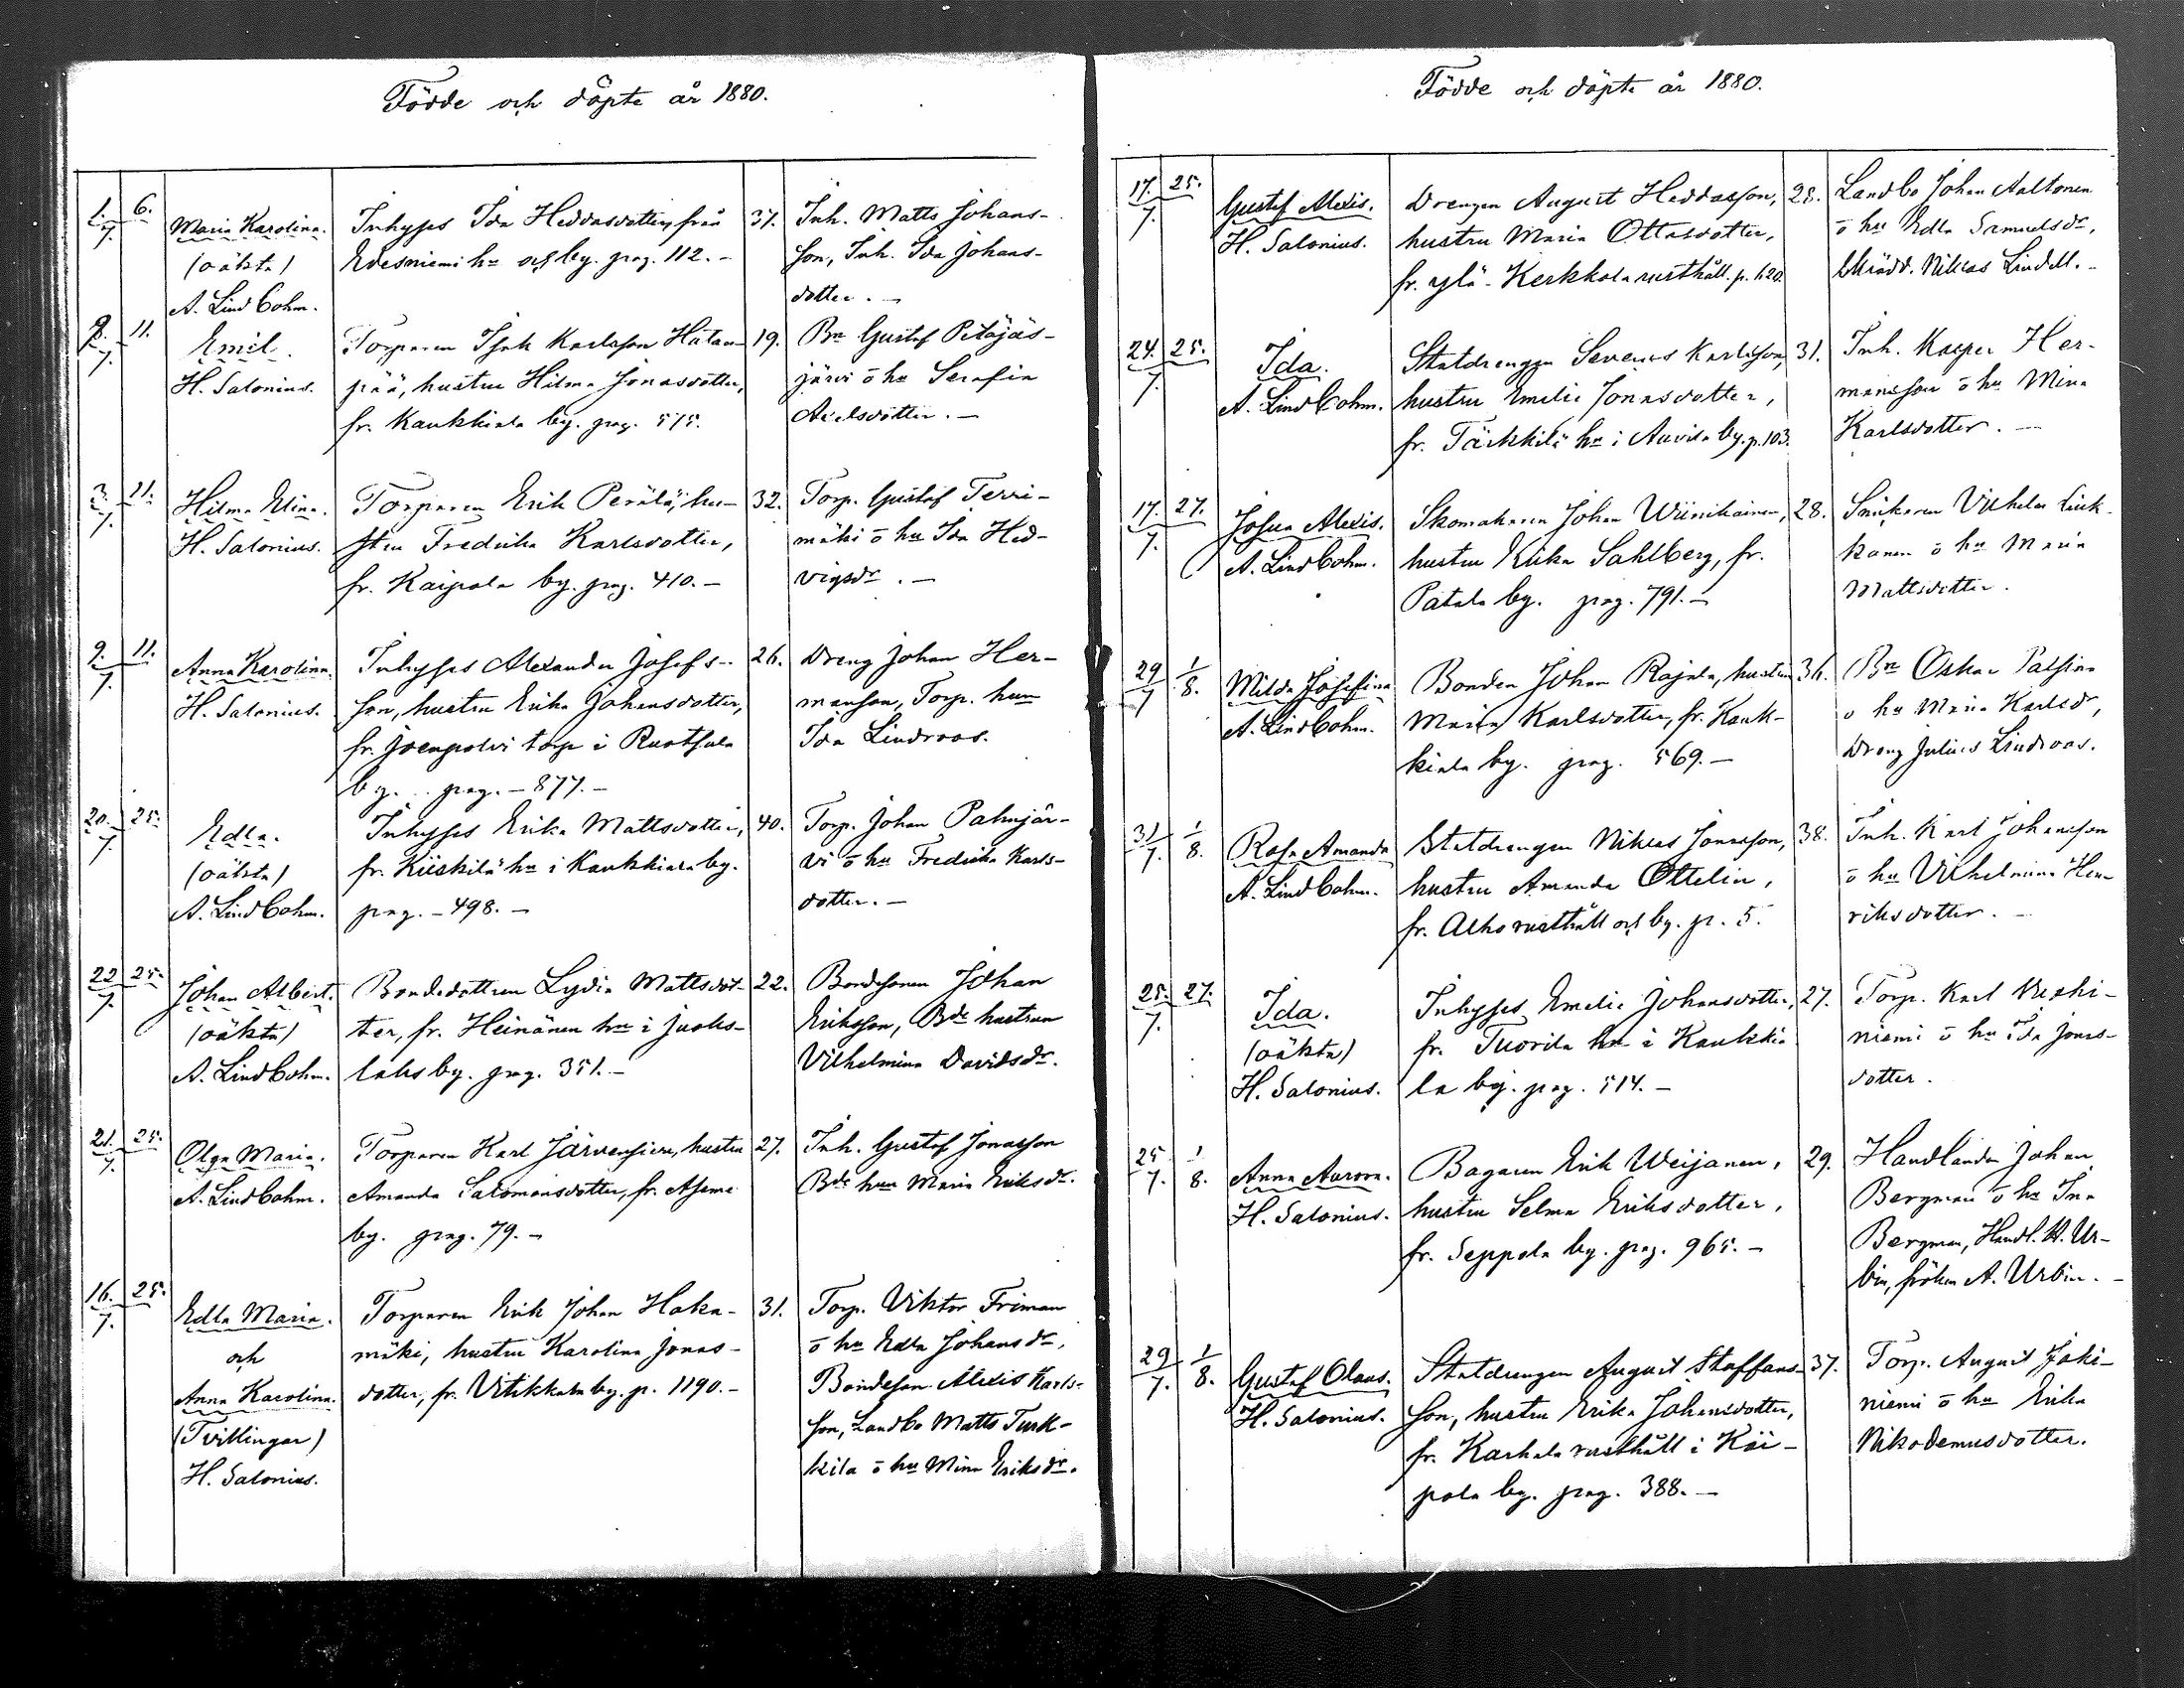 Födde och döpte år 1880.
1. 6. Maria Karolina. Inhyses Ida Heddasdotter, från 37. Inh. Matts Johans-
7. (oäkta) Edesniemi hn och by. pag. 112. – son, Inh. Ida Johans-
A. Lindbohm. dotter. –
9. 11. Emil. Torparen Isak Karlsson Hatan- 19. Bn Gustaf Petäjäs-
7. H. Salonius. pää, hustru Hilma Jonasdotter, järvi o hu Serafia
fr. Kaukkiala by. pag. 515. Axelsdotter. –
3. 11. Hilma Elina. Torparen Erik Perälä, hu- 32. Torp. Gustaf Terri-
7. H. Salonius. stru Fredrika Karlsdotter, mäki o hu Ida Hed-
fr. Kaipola by. pag. 410. – vigsdr. –
9. 11. Anna Karolina. Inhyses Alexander Josefs- 26. Dreng Johan Her-
7. H. Salonius. son, hustru Erika Johansdotter, mansson, Torp. hun
fr. Joenpolvi torp i Ruotsula Ida Lindroos.
by. pag. – 877. –
20. 25. Edla. Inhyses Erika Mattsdotter, 40. Torp. Johan Palvajär-
7. (oäkta) fr. Kiiskilä hn i Kaukkiala by. vi o hu Fredrika Karls-
A. Lindbohm. pag. – 498. – dotter. –
22 25. Johan Albert. Bondedottren Lydia Mattsdot- 22. Bondesonen Johan
7. (oäkta) ter, fr. Heinänen hn i Juoks- Eriksson, Bde hustrun
A. Lindbohm. lahs by. pag. 351. – Vilhelmina Davidsdr.
21. 25. Olga Maria. Torparen Karl Järvensivu, hustru 27. Inh. Gustaf Jonasson
7. A. Lindbohm. Amanda Salomonsdotter, fr. Asemo Bde hun Maria Eriksdr.
by. pag. 79. –
16. 25. Edla Maria. Torparen Erik Johan Haka- 31. Torp. Viktor Friman
7. och mäki, hustru Karolina Jonas- o hu Edla Johansdr,
Anna Karolina. dotter, fr. Vitikkala by. p. 1190. – Bondeson Alexis Karls-
(Tvillingar) son, Landbo Matts Turk-
H. Salonius. kila o hu Mina Eriksdr.
Födde och döpte år 1880.
17. 25. Gustaf Alexis. Drengen August Heddasson, 28. Landbo Johan Aaltonen
7. H. Salonius. hustru Maria Ottasdotter, o hu Edla Samuelsdr,
fr. Ylä-Kerkkola rusthåll. p. 620. Skrädd. Niklas Lindell. –
24. 25. Ida. Statdrengen Severus Karlsson, 31. Inh. Kasper Her-
7. A. Lindbohm. hustru Emilie Jonasdotter, mansson o hu Mina
fr. Tärkkilä hn i Auvila by. p. 103. Karlsdotter. –
17. 27. Josua Alexis. Skomakaren Johan Wiinikainen, 28. Snickaren Vilhelm
7. A. Lindbohm. hustru Erika Sahlberg, fr. o hu Maria
Patala by. pag. 791. – Mattsdotter.
29 1 Milda Josefina Bonden Johan Rajala, hustru 36. Bn Oskar
7 8. A. Lindbohm. Maria Karlsdotter, fr. Kauk- o hu Maria Karlsdr,
kiala by. pag. 569. – Dreng Julius Lindroos.
31 1 Rosa Amanda Statdrengen Niklas Jonasson, 38. Inh. Karl Johansson
7. 8. A. Lindbohm. hustru Amanda Ottelin, o hu Vilhelmina Hen-
fr. Alho rusthåll och by. p. 5. riksdotter. –
25. 27. Ida. Inhyses Emelie Johansdotter, 27. Torp. Karl
7. (oäkta) fr. Tuorila hn i Kaukkia niemi o hu Ida Jonas-
H. Salonius. la by. pag. 514. – dotter.
25 1 Anna Aurora. Bagaren Erik Weijanen, 29. Handlanden Johan
7. 8. H. Salonius. hustru Selma Eriksdotter, Bergman o hu Ina
fr. Seppola by. pag. 965. – Bergman, Handl. A. Ur-
bin, fröken A. Urbin. –
29 1 Gustaf Olaus. Statdrengen August Staffans- 37. Torp. August Joki-
7. 8. H. Salonius. son, hustru Erika Johansdotter, niemi o hu Erika
fr. Karhala rusthåll i Käi- Nikodemusdotter.
pola by. pag. 388. –